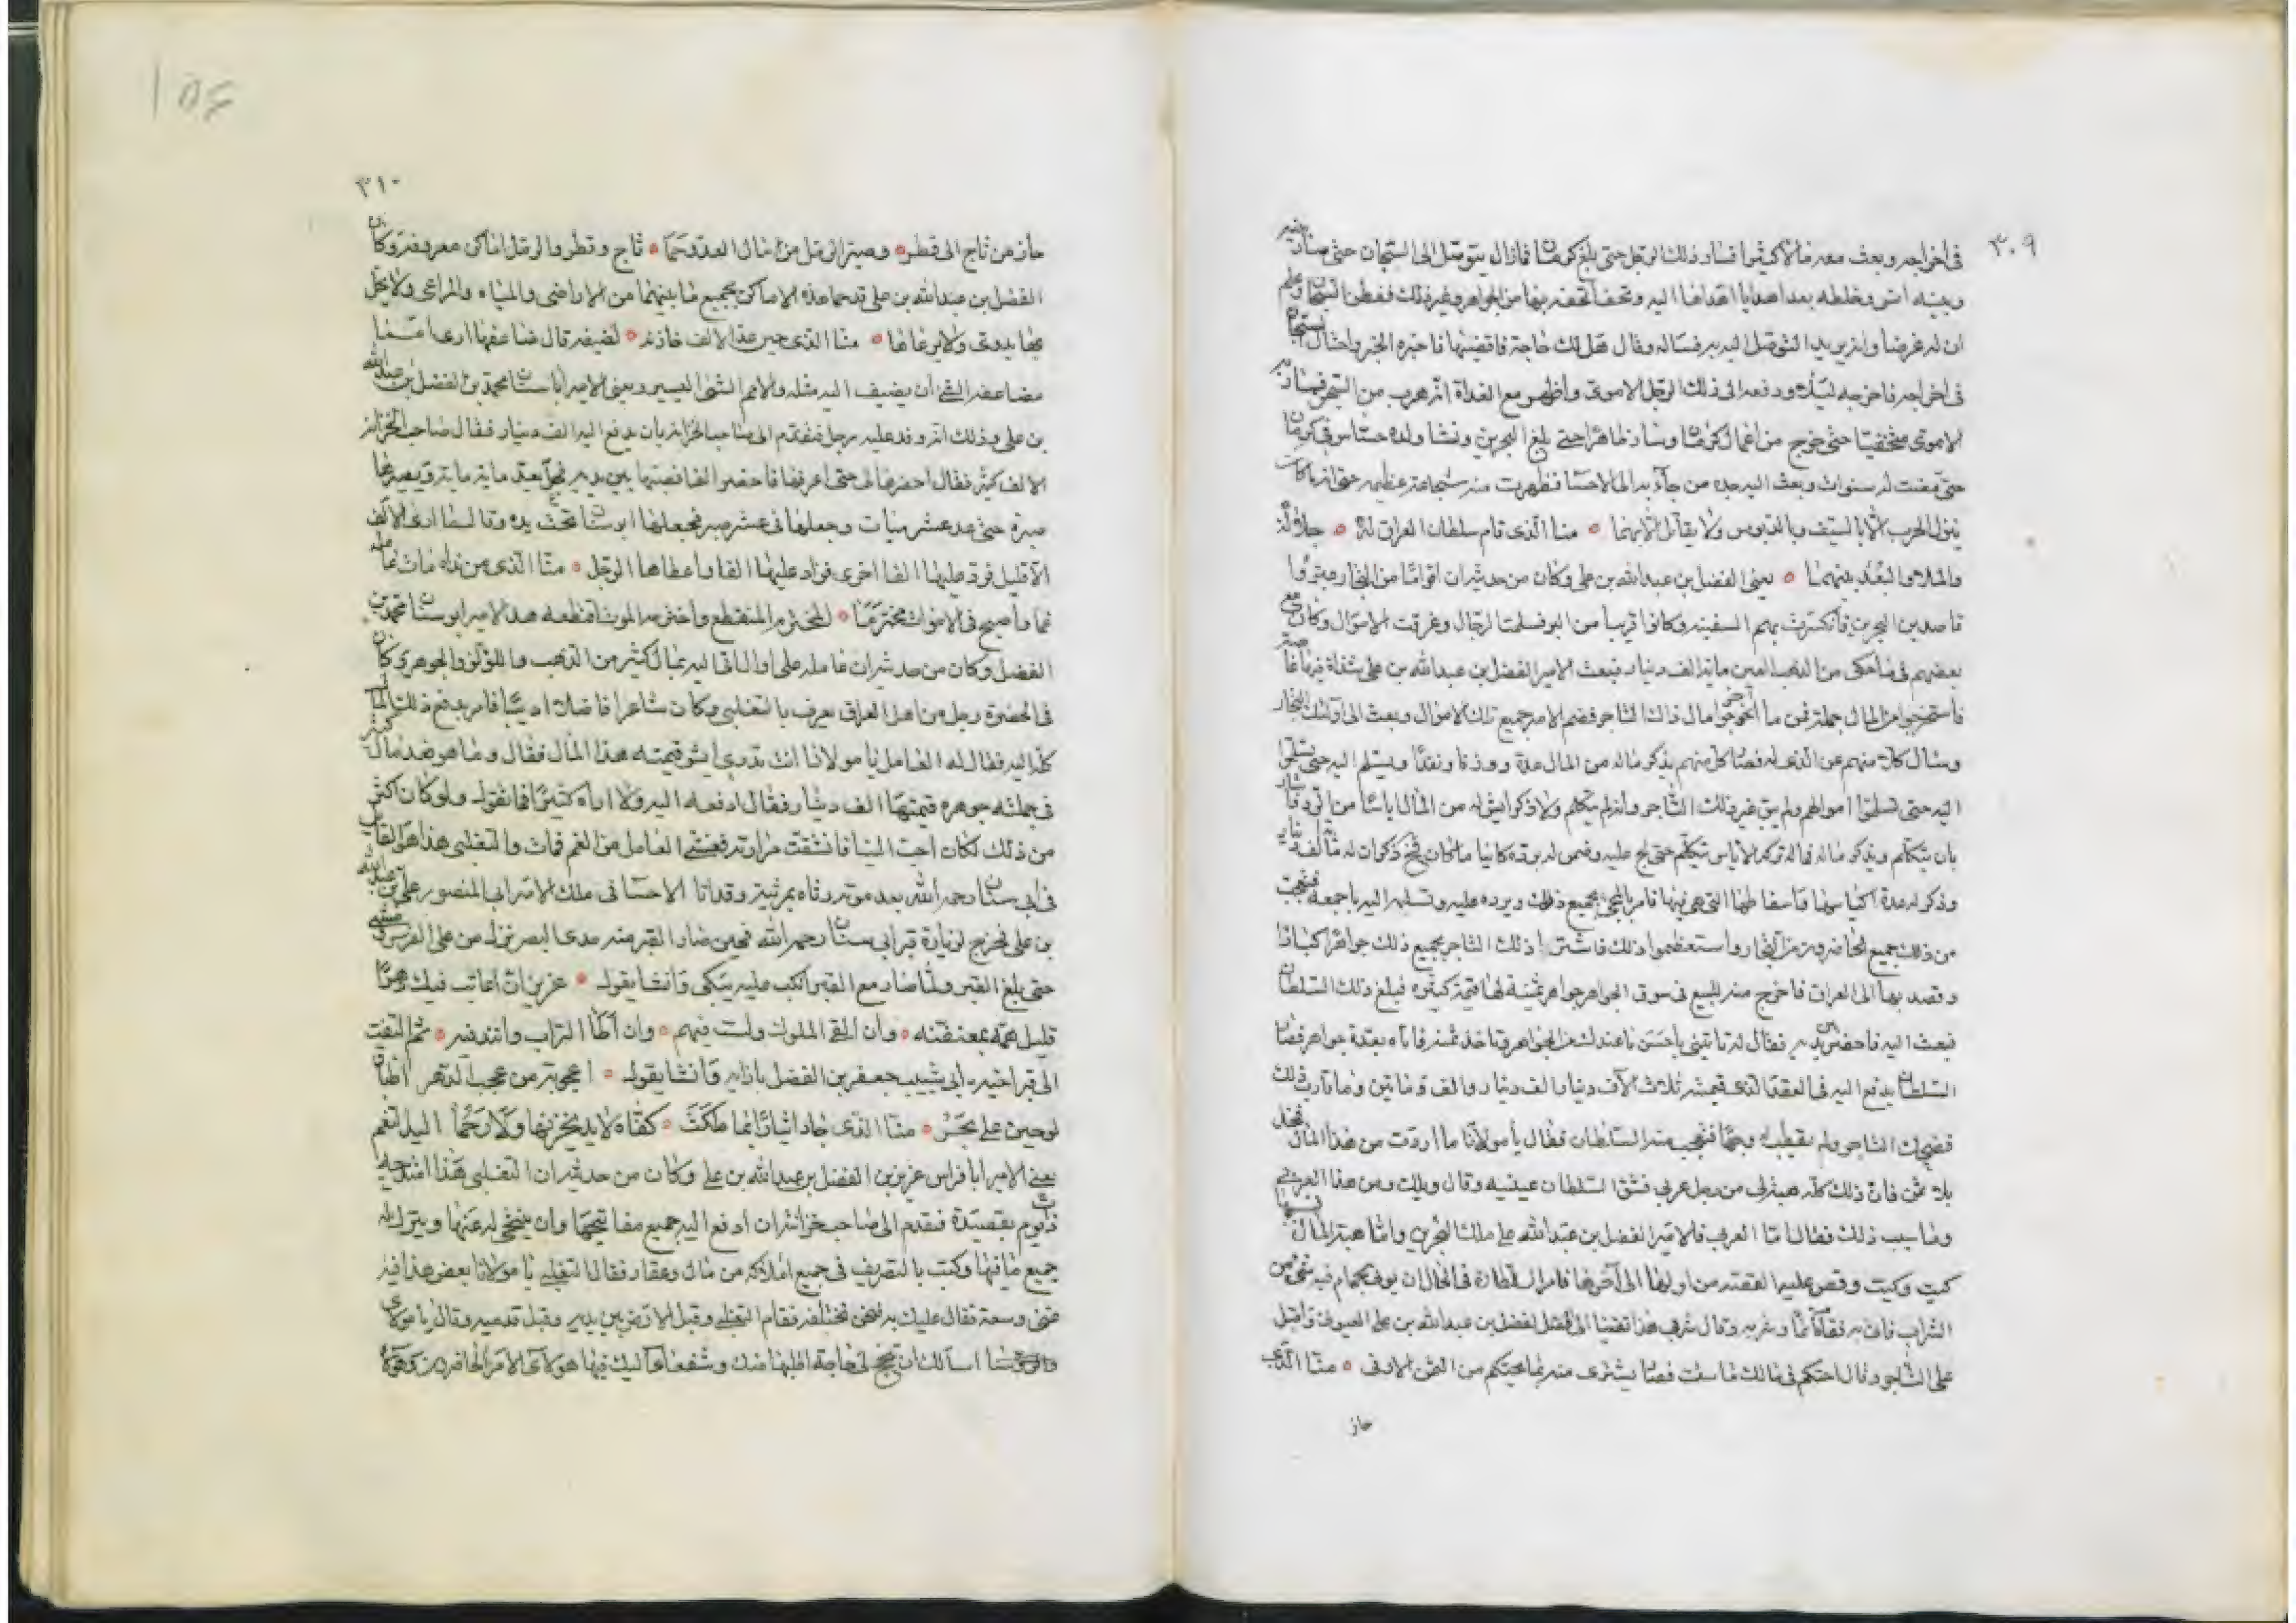 ٣٠٩
في اخراجه وبعث معه مالا كثيرا فسار ذلك الرجل حتى بلغ كرمان فما زال يتوصل الى السجان حتى صار بينه
وبينه انس وخلطه بعد هدايا اهداها اليه وتحف اتحفه بها من الجواهر وغير ذلك ففطن السجان وعلم
ان له غرضا وانه يريد التوصل اليه به فساله وقال هل لك حاجة فاقضيها فاخبره الخبر واحتال السجان
في اخراجه فاخرجه ليلا ودفعه الى ذلك الرجل الاموي واظهر مع الغداة انه هرب من السجن فسار به
الاموي مختفيا حتى خرج من اعمال كرمان وسار ظاهرا حتى بلغ البحرين ونشا ولده حساس في كرمان
حتى مضت له سنوات وبعث اليه جده من جاء به الى الاحسا فظهرت منه شجاعة عظيمة حتى انه كان
ينزل الحرب بالسيف وبالدبوس ولا يقاتل الا بهما منا الذي قام سلطان العراق له جلالة
والمدا والبعد بينهما يعني الفضل بن عبدالله بن علي وكان من حديثه ان اقواما من التجار عبروا
قاصدين البحرين فانكسرت بهم السفينة وكانوا قريبا من البر فسلمت الرجال وغرقت الاموال وكان مع
بعضهم فيما حكى من الذهب العين ماية الف دينار فبعث الامير الفضل بن عبدالله بن علي
فاستخرجوا المال جملة فمن ما اخرجوا مال ذلك التاجر فضم الامير جميع تلك الاموال وبعث الى اولئك التجار
وسال كلا منهم عن الذي له فصار كل منهم يذكر ماله من المال عدة ووزنا ونقدا ويسلم اليه حتى
اليه حتى تسلموا اموالهم ولم يبق غير ذلك التاجر وانه لم يتكلم ولا ذكر ايش له من المال اياسا من
بان يتكلم ويذكر ماله
وذكر له عدة اكياسها واسفاطها التي هي فيها فامر بالمجيء بجميع ذلك ويرده عليه وتسلمه اليه باجمعه فتعجب
من ذلك جميع الحاضرين من التجار واستعظموا ذلك فاشترى ذلك التاجر بجميع ذلك جواهرا كبارا
وقصد بها الى العراق فاخرج منه للبيع في سوق الجواهر جواهر ثمينة لها قيمة كبيرة فبلغ ذلك السلطان
فبعث اليه فاحضر بين يديه فقال له تاتيني باحسن ما عندك من الجواهر وتاخذ ثمنه فاتاه بعدة جواهر فصار
السلطان يدفع اليه في العقد الذي قيمته ثلاث الاف دينار الف دينار والف وماتين وما قارب ذلك
فضحك التاجر ولم يقطب وجها فتعجب منه السلطان فقال يا مولانا ما اردت من هذا المال فخذ
بلا ثمن فان ذلك كله هبة لي من رجل عربي فشق السلطان عينيه وقال ويلك ومن هذا العربي
وما سبب ذلك فقال اما العربي فالامير الفضل بن عبدالله بن علي ملك البحرين واما هبته المال
كيت وكيت وقص عليه القصة من اولها الى اخرها فامر السلطان في الحال ان يوتى بجام فيه شيء من
الشراب فاتي به فقام قائما وشربه وقال شرفي هذا تقضيا الى الفضل بن عبدالله بن علي العيوني واقبل
على التاجر وقال احتكم في مالك ما شئت فصار يشتري منه بما يحتكم من الثمن الاوفى منا الذي
حاز
٣١٠
حاز من ثاج الى قطر وصير الرمل من مال العدو حما ثاج وقطر والرمل اماكن معروفة وكان
الفضل بن عبدالله بن علي قد حما هذه الاماكن بجميع ما بينهما من الاراضي والمياه والمراعي ولا يحل
بها بدوي ولا يرعاها منا الذي حين عد الالف خازنه لضيفه قال ضاعفها ارى امما
مضاعفة الشيء ان يضيف اليه مثله والامم الشيء اليسير ويعني الامير ابا سنان محمد بن الفضل بن عبدالله
بن علي وذلك انه وفد عليه رجل فتقدم الى صاحب الخزانة بان يدفع اليه الف دينار فقال صاحب الخزانة
الالف كثير فقال احضرها لي حتى اعرفها فاحضر الفا فصبها بين يديه فجعل يعد ماية ماية ويصيرها
صرة حتى عد عشر ميات وجعلها في عشر صرر فجعلها ابو سنان تحت يده وقال ما ارى الالف
الا قليل فزد عليها الفا اخرى فزاد عليها الفا واعطاها الرجل منا الذي من نداه مات عامله
غما واصبح في الاموات مخترما المخترم المنقطع واخترمه الموت قطعه هذا الامير ابو سنان محمد بن
الفضل وكان من حديثه ان عامله على اوال اتى اليه بمال كثير من الذهب واللؤلؤ والجوهر وكان
في الحضرة رجل من اهل العراق يعرف بالتغلبي وكان شاعرا فاضلا اديبا فامر بدفع ذلك المال
كله اليه فقال له العامل يا مولانا انت تدري ايش قيمة هذا المال فقال وما هو هذا مال كثير
في جملته جوهره قيمتها الف دينار فقال ادفعه اليه ولا اراه كثيرا فيما نقوله ولو كان اكثر
من ذلك لكان احب الينا فانشقت مرارة العامل من الغم فمات والتغلبي هذا هو القايل
في ابي سنان رحمه الله بعد موته رثاه بمرثية وقد اتا الاحسا في ملك الامير ابي المنصور علي بن عبدالله
بن علي فخرج لزيارة قبر ابي سنان رحمه الله فحين صار القبر منه مدى البصر نزل من على الفرس ومشى
حتى بلغ القبر ولما صار مع القبر انكب عليه يبكي وانشا يقول عزيز ان اعاتب فيك دهرا
قليل همه بمعنفيه وان القى الملوك ولست فيهم وان اطا التراب وانت فيه ثم التفت
الى قبر اخيه ابي شبيب جعفر بن الفضل بازايه وانشا يقول اعجوبة من عجب الدهر اطبا
لوحين على بحر منا الذي جاد ايثارا بما ملكت كفاه لا يد يخزيها ولا رحما اليد النعم
يعني الامير ابا فراس عزيز بن الفضل بن عبدالله بن علي وكان من حديثه ان التغلبي هذا امتدحه
ذات يوم بقصيدة فتقدم الى صاحب خزانته ان ادفع اليه جميع مفاتيحها وان يتنحى له عنها ويترك له
جميع ما فيها وكتب بالتصريف في جميع املاكه من مال وعقار فقال التغلبي يا مولانا بعض هذا فيه
غنى وسعة فقال عليك به فنحن نختلفه فقام التغلبي وقبل الارض بين يديه وقبل قدميه وقال يا مولاي
اسالك ان تنجح لي حاجة اطلبها منك وشفعائي اليك فيها هولاي الامرا الحاضرين